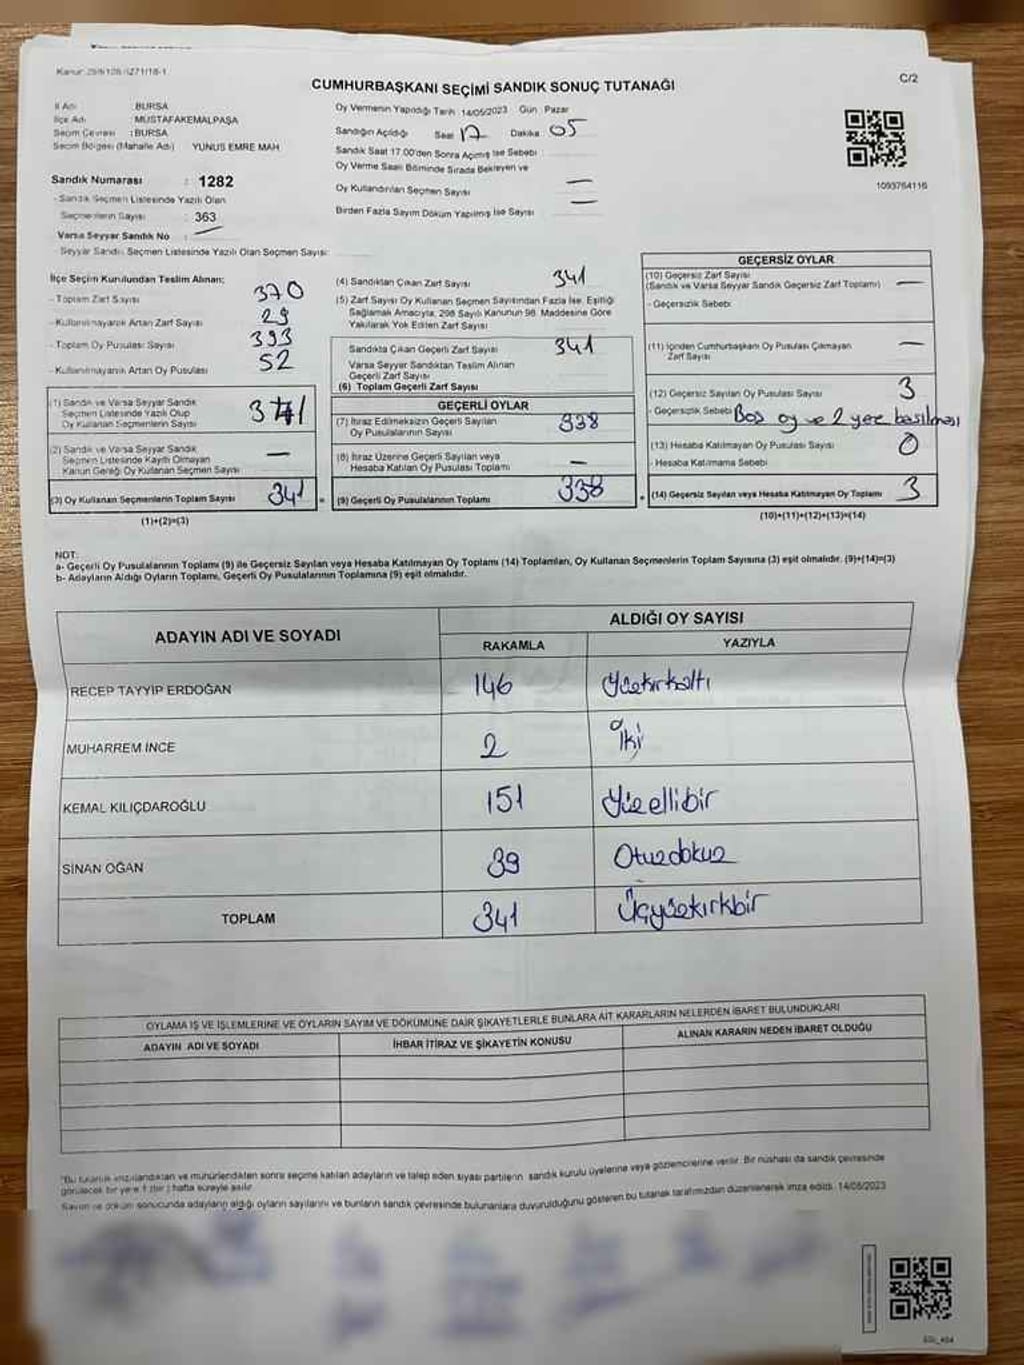 CUMHURBAŞKANI SEÇİMİ SANDIK SONUÇ TUTANAĞI
C/2
İl Adı : BURSA
İlçe Adı : MUSTAFAKEMALPAŞA
Seçim Çevresi : BURSA
Seçim Bölgesi (Mahalle Adı) YUNUS EMRE MAH
Sandık Numarası : 1282
- Sandık Seçmen Listesinde Yazılı Olan
Seçmenlerin Sayısı : 363
Varsa Seyyar Sandık No : —
- Seyyar Sandık Seçmen Listesinde Yazılı Olan Seçmen Sayısı:
Oy Vermenin Yapıldığı Tarih : 14/05/2023 Gün : Pazar
Sandığın Açıldığı Saat 17 Dakika 05
Sandık Saat 17.00'den Sonra Açımış İse Sebebi :
Oy Verme Saati Bitiminde Sırada Bekleyen ve
Oy Kullandırılan Seçmen Sayısı —
Birden Fazla Sayım Döküm Yapılmış İse Sayısı —
1093764116
İlçe Seçim Kurulundan Teslim Alınan:
- Toplam Zarf Sayısı 370
- Kullanılmayarak Artan Zarf Sayısı 29
- Toplam Oy Pusulası Sayısı 393
- Kullanılmayarak Artan Oy Pusulası 52
(1) Sandık ve Varsa Seyyar Sandık
Seçmen Listesinde Yazılı Olup
Oy Kullanan Seçmenlerin Sayısı 341
(2) Sandık ve Varsa Seyyar Sandık
Seçmen Listesinde Kayıtlı Olmayan
Kanun Gereği Oy Kullanan Seçmen Sayısı —
(3) Oy Kullanan Seçmenlerin Toplam Sayısı 341 =
(1)+(2)=(3)
(4) Sandıktan Çıkan Zarf Sayısı 341
(5) Zarf Sayısı Oy Kullanan Seçmen Sayısından Fazla İse, Eşitliği
Sağlamak Amacıyla, 298 Sayılı Kanunun 98. Maddesine Göre
Yakılarak Yok Edilen Zarf Sayısı
Sandıkta Çıkan Geçerli Zarf Sayısı 341
Varsa Seyyar Sandıktan Teslim Alınan
Geçerli Zarf Sayısı
(6) Toplam Geçerli Zarf Sayısı
GEÇERLİ OYLAR
(7) İtiraz Edilmeksizin Geçerli Sayılan
Oy Pusulalarının Sayısı 338
(8) İtiraz Üzerine Geçerli Sayılan veya
Hesaba Katılan Oy Pusulası Toplamı —
(9) Geçerli Oy Pusulalarının Toplamı 338 +
GEÇERSİZ OYLAR
(10) Geçersiz Zarf Sayısı
(Sandık ve Varsa Seyyar Sandık Geçersiz Zarf Toplamı) —
- Geçersizlik Sebebi
(11) İçinden Cumhurbaşkanı Oy Pusulası Çıkmayan
Zarf Sayısı —
(12) Geçersiz Sayılan Oy Pusulası Sayısı 3
- Geçersizlik Sebebi Boş oy ve 2 yere basılması
(13) Hesaba Katılmayan Oy Pusulası Sayısı 0
- Hesaba Katılmama Sebebi
(14) Geçersiz Sayılan veya Hesaba Katılmayan Oy Toplamı 3
(10)+(11)+(12)+(13)=(14)
NOT:
a- Geçerli Oy Pusulalarının Toplamı (9) ile Geçersiz Sayılan veya Hesaba Katılmayan Oy Toplamı (14) Toplamları, Oy Kullanan Seçmenlerin Toplam Sayısına (3) eşit olmalıdır. (9)+(14)=(3)
b- Adayların Aldığı Oyların Toplamı, Geçerli Oy Pusulalarının Toplamına (9) eşit olmalıdır.
ADAYIN ADI VE SOYADI
ALDIĞI OY SAYISI
RAKAMLA YAZIYLA
RECEP TAYYİP ERDOĞAN 146 Yüzkırkaltı
MUHARREM İNCE 2 İki
KEMAL KILIÇDAROĞLU 151 Yüzellibir
SİNAN OĞAN 39 Otuzdokuz
TOPLAM 341 Üçyüzkırkbir
OYLAMA İŞ VE İŞLEMLERİNE VE OYLARIN SAYIM VE DÖKÜMÜNE DAİR ŞİKAYETLERLE BUNLARA AİT KARARLARIN NELERDEN İBARET BULUNDUKLARI
ADAYIN ADI VE SOYADI İHBAR İTİRAZ VE ŞİKAYETİN KONUSU ALINAN KARARIN NEDEN İBARET OLDUĞU
"Bu tutanak imzalandıktan ve mühürlendikten sonra seçime katılan adayların ve talep eden siyasi partilerin sandık kurulu üyelerine veya gözlemcilerine verilir. Bir nüshası da sandık çevresinde
görülecek bir yere 1 (bir) hafta süreyle asılır.
Sayım ve döküm sonucunda adayların aldığı oyların sayılarını ve bunların sandık çevresinde bulunanlara duyurulduğunu gösteren bu tutanak tarafımızdan düzenlenerek imza edildi. 14/05/2023